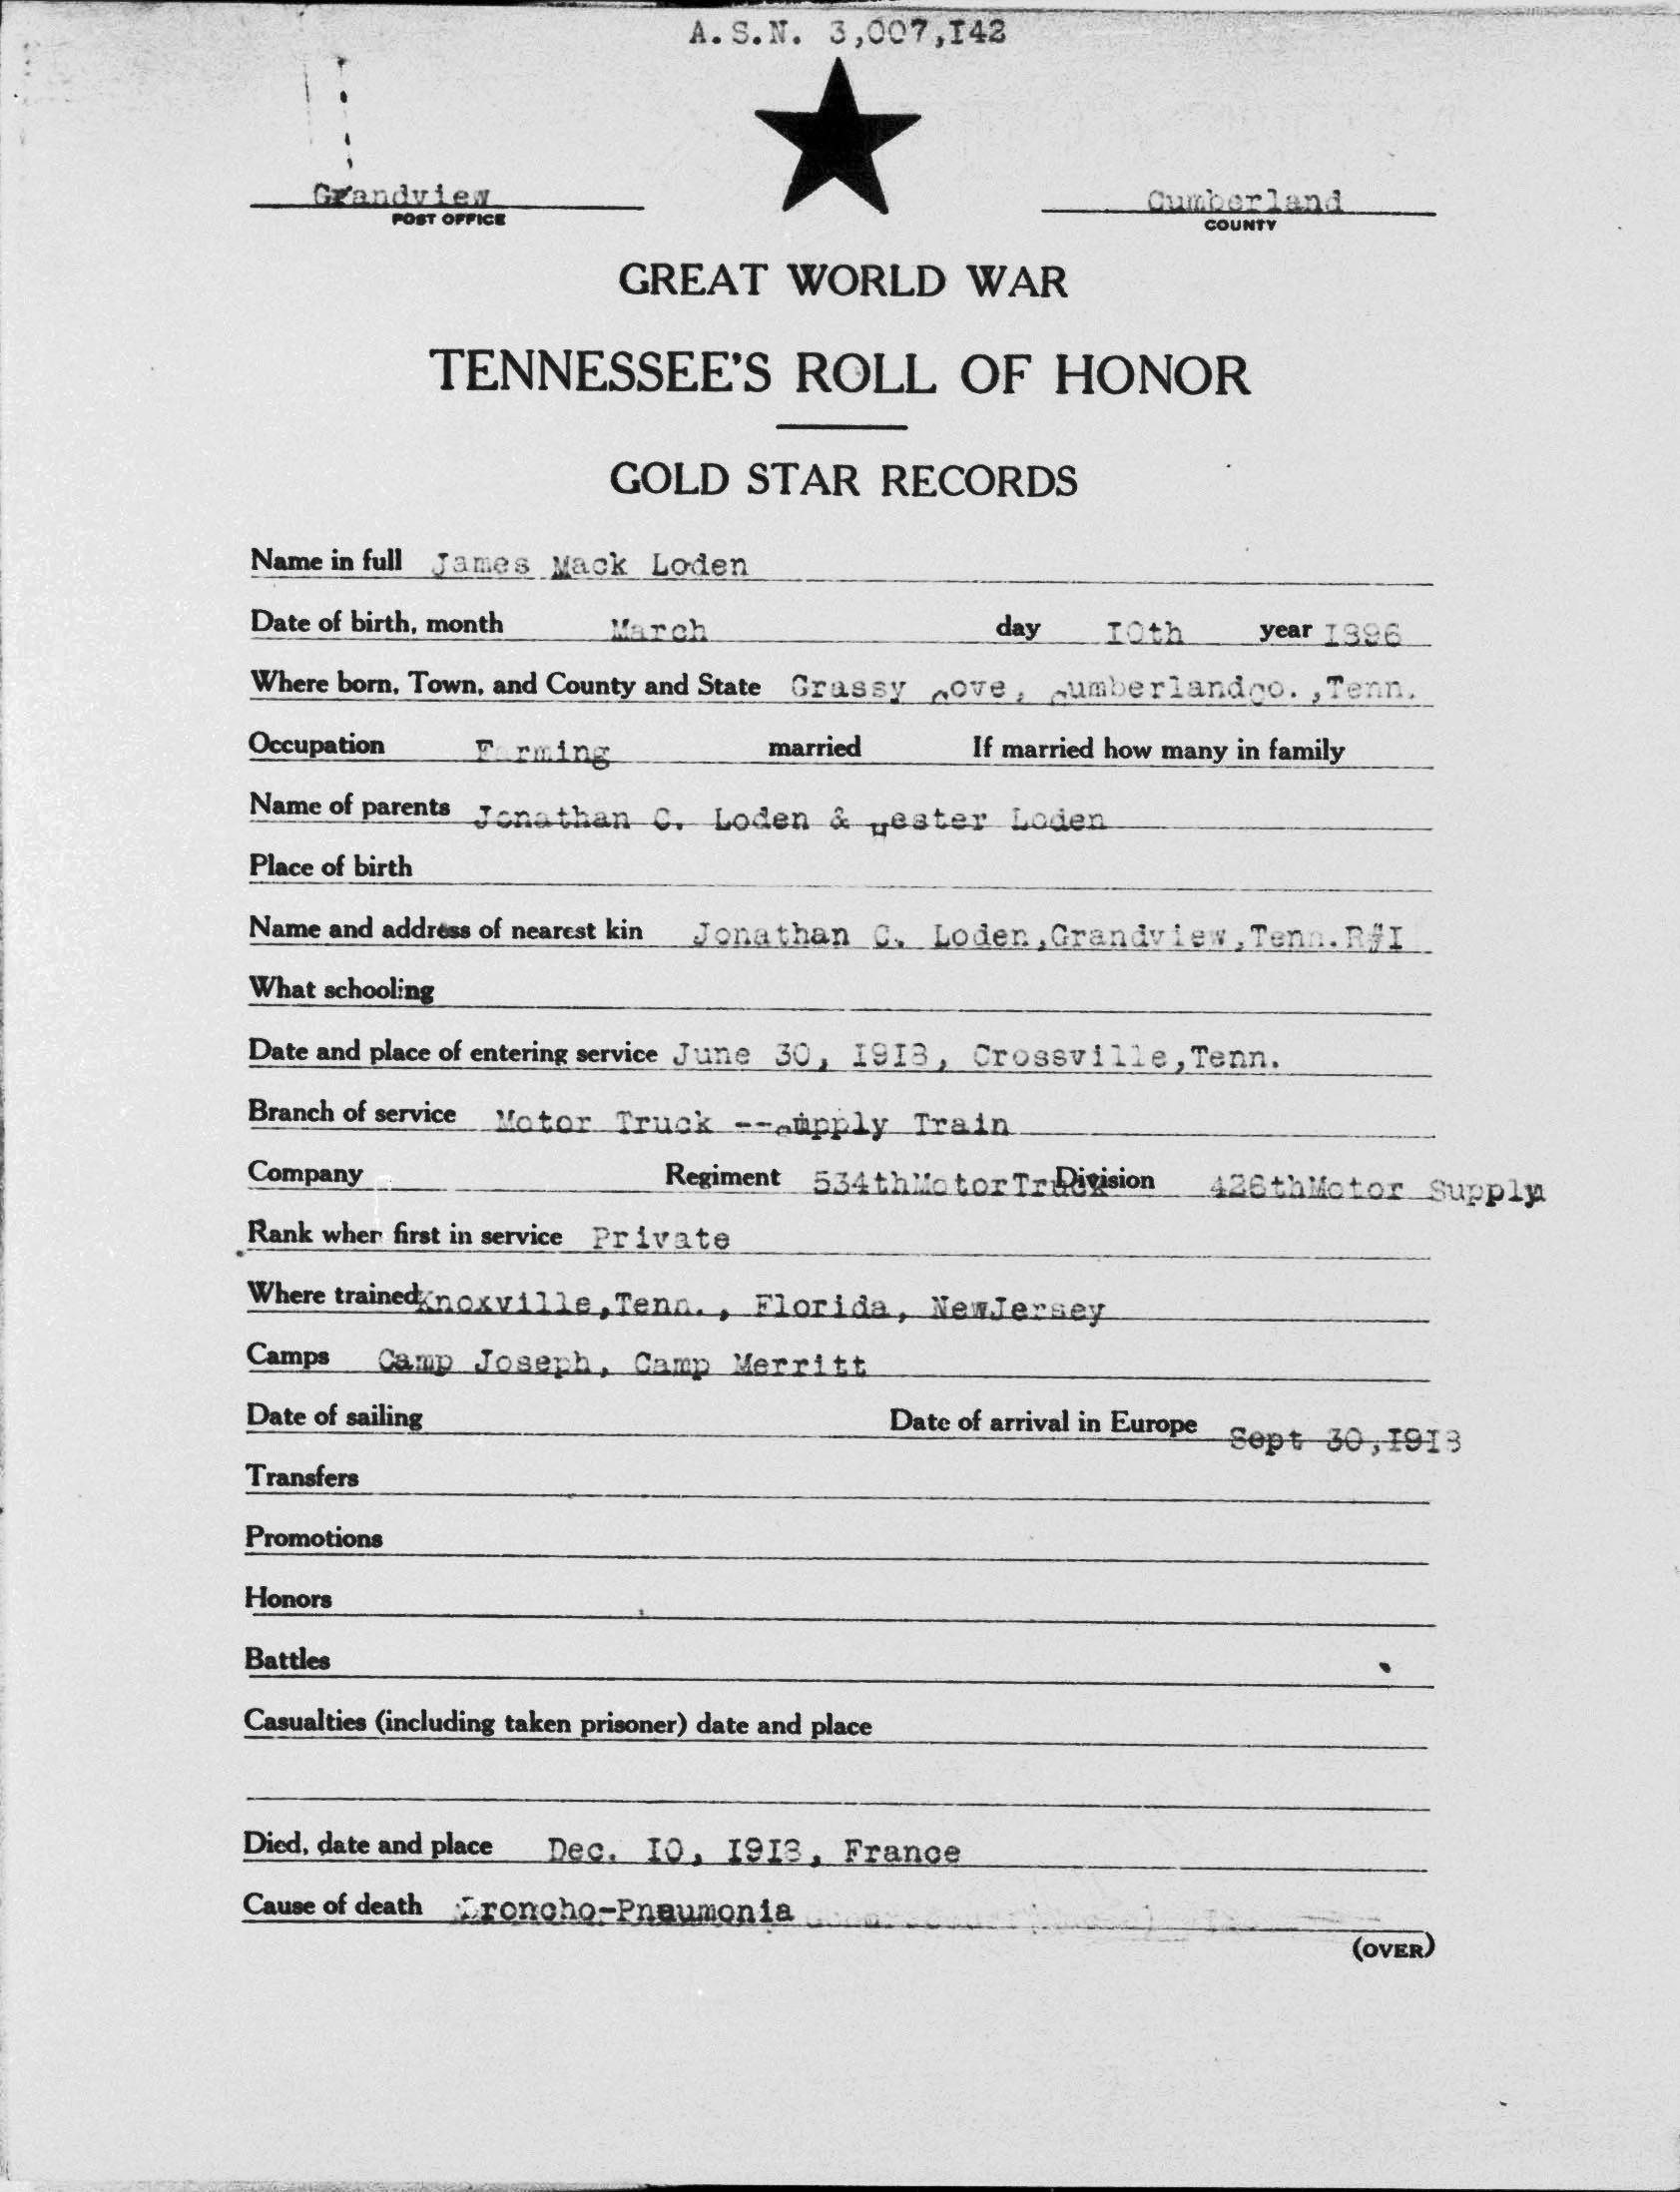 A.S.N. 3,007,I42
Grandview
POST OFFICE
Cumberland
COUNTY
GREAT WORLD WAR
TENNESSEE'S ROLL OF HONOR
GOLD STAR RECORDS
Name in full James Mack Loden
Date of birth, month March day I0th year I896
Where born, Town, and County and State Grassy Cove, CumberlandCo.,Tenn.
Occupation Farming married If married how many in family
Name of parents Jonathan C. Loden & Hester Loden
Place of birth
Name and address of nearest kin Jonathan C. Loden,Grandview,Tenn.R#I
What schooling
Date and place of entering service June 30, I9I8, Crossville,Tenn.
Branch of service Motor Truck -- Supply Train
Company Regiment 534thMotorTruck Division 426thMotor Supply
Rank when first in service Private
Where trained Knoxville,Tenn., Florida, NewJersey
Camps Camp Joseph, Camp Merritt
Date of sailing Date of arrival in Europe Sept 30,I9I8
Transfers
Promotions
Honors
Battles
Casualties (including taken prisoner) date and place
Died, date and place Dec. I0, I9I8, France
Cause of death Broncho-Pneumonia
(OVER)